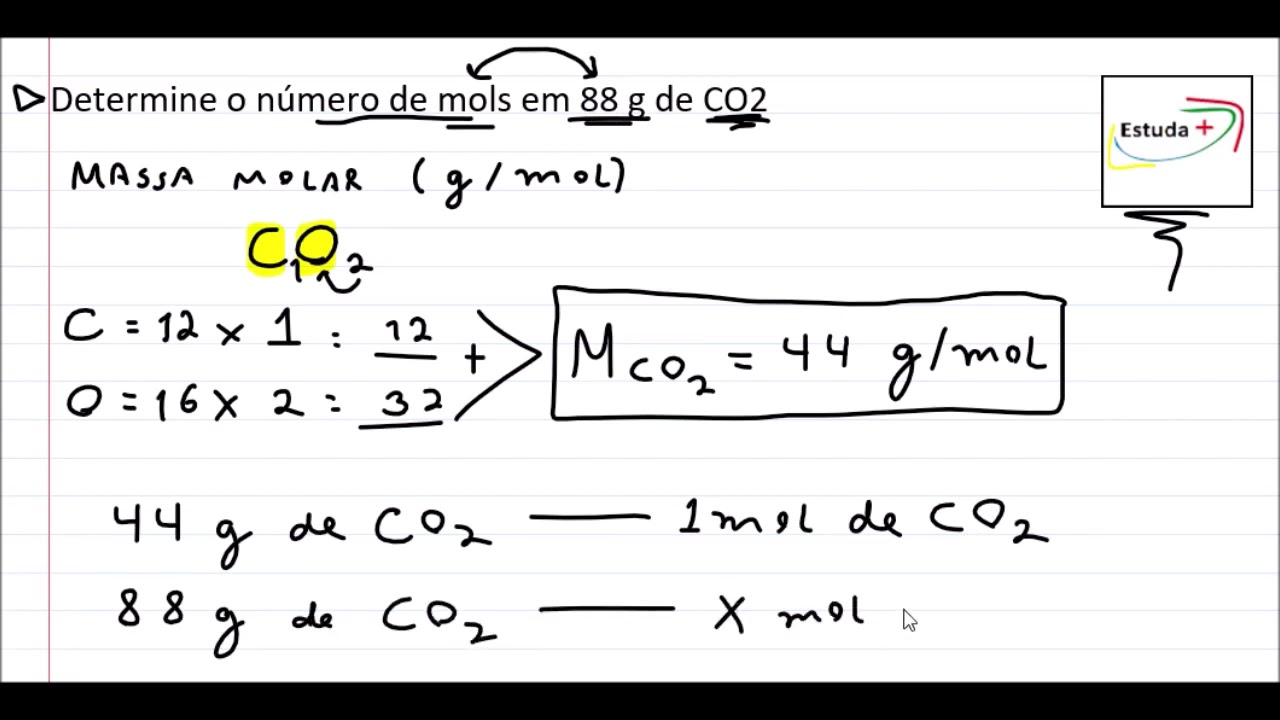 Determine o número de mols em 88 g de CO2
Estuda +
MASSA MOLAR (g/mol)
C1O2
C = 12 x 1 : 12
+
O = 16 x 2 = 32
MCO2 = 44 g/mol
44 g de CO2 — 1 mol de CO2
88 g de CO2 — X mol